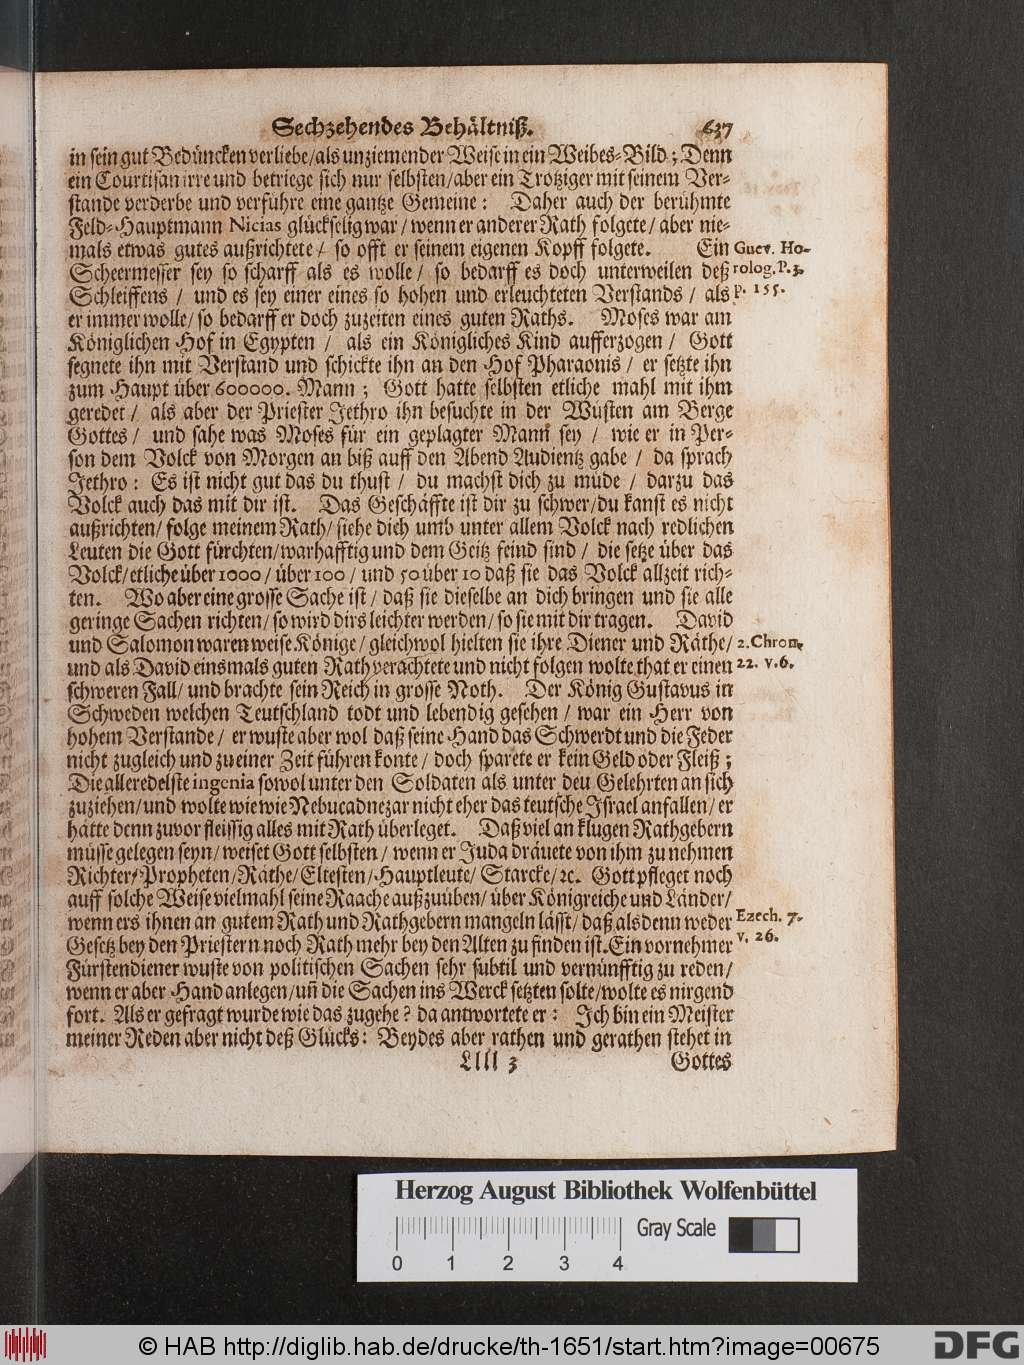 Sechzehendes Behältniß. 637
in sein gut Bedüncken verliebe/als unziemender Weise in ein Weibes-Bild; Denn
ein Courtisan irre und betriege sich nur selbsten/aber ein Trotziger mit seinem Ver-
stande verderbe und verführe eine gantze Gemeine: Daher auch der berühmte
Feld-Hauptmann Nicias glückselig war/wenn er anderer Rath folgete/aber nie-
mals etwas gutes außrichtete/ so offt er seinem eigenen Kopff folgete. Ein
Scheermesser sey so scharff als es wolle/ so bedarff es doch unterweilen deß
Schleiffens/ und es sey einer eines so hohen und erleuchteten Verstands/ als
er immer wolle/so bedarff er doch zuzeiten eines guten Raths. Moses war am
Königlichen Hof in Egypten/ als ein Königliches Kind aufferzogen/ Gott
segnete ihn mit Verstand und schickte ihn an den Hof Pharaonis/ er setzte ihn
zum Haupt über 600000. Mann; Gott hatte selbsten etliche mahl mit ihm
geredet/ als aber der Priester Jethro ihn besuchte in der Wüsten am Berge
Gottes/ und sahe was Moses für ein geplagter Mann sey/ wie er in Per-
son dem Volck von Morgen an biß auff den Abend Audientz gabe/ da sprach
Jethro: Es ist nicht gut das du thust/ du machst dich zu müde/ darzu das
Volck auch das mit dir ist. Das Geschäffte ist dir zu schwer/du kanst es nicht
außrichten/folge meinem Rath/siehe dich umb unter allem Volck nach redlichen
Leuten die Gott fürchten/warhafftig und dem Geitz feind sind/ die setze über das
Volck/etliche über 1000/über 100/ und 50 über 10 daß sie das Volck allzeit rich-
ten. Wo aber eine grosse Sache ist/daß sie dieselbe an dich bringen und sie alle
geringe Sachen richten/so wird dirs leichter werden/so sie mit dir tragen. David
und Salomon waren weise Könige/gleichwol hielten sie ihre Diener und Räthe/
und als David einsmals guten Rath verachtete und nicht folgen wolte that er einen
schweren Fall/und brachte sein Reich in grosse Noth. Der König Gustavus in
Schweden welchen Teutschland todt und lebendig gesehen/ war ein Herr von
hohem Verstande/ er wuste aber wol daß seine Hand das Schwerdt und die Feder
nicht zugleich und zu einer Zeit führen konte/doch sparete er kein Geld oder Fleiß;
Die alleredelste ingenia sowol unter den Soldaten als unter deu Gelehrten an sich
zuziehen/und wolte wie wie Nebucadnezar nicht eher das teutsche Israel anfallen/er
hätte denn zuvor fleissig alles mit Rath überleget. Daß viel an klugen Rathgebern
müsse gelegen seyn/weiset Gott selbsten/ wenn er Juda dräuete von ihm zu nehmen
Richter/Propheten/Räthe/Eltesten/Hauptleute/Starcke/ꝛc. Gott pfleget noch
auff solche Weise vielmahl seine Raache außzuüben/über Königreiche und Länder/
wenn ers ihnen an gutem Rath und Rathgebern mangeln lässt/daß alsdenn weder
Gesetz bey den Priestern noch Rath mehr bey den Alten zu finden ist. Ein vornehmer
Fürstendiener wuste von politischen Sachen sehr subtil und vernünfftig zu reden/
wenn er aber Hand anlegen/uñ die Sachen ins Werck setzten solte/wolte es nirgend
fort. Als er gefragt wurde wie das zugehe? da antwortete er: Ich bin ein Meister
meiner Reden aber nicht deß Glücks: Beydes aber rathen und gerathen stehet in
Llll 3 Gottes
Guev. Ho-
rolog. P. 3.
p. 155.
2. Chron.
22. v. 6.
Ezech. 7.
v. 26.
Herzog August Bibliothek Wolfenbüttel
Gray Scale
0 1 2 3 4
© HAB http://diglib.hab.de/drucke/th-1651/start.htm?image=00675
DFG